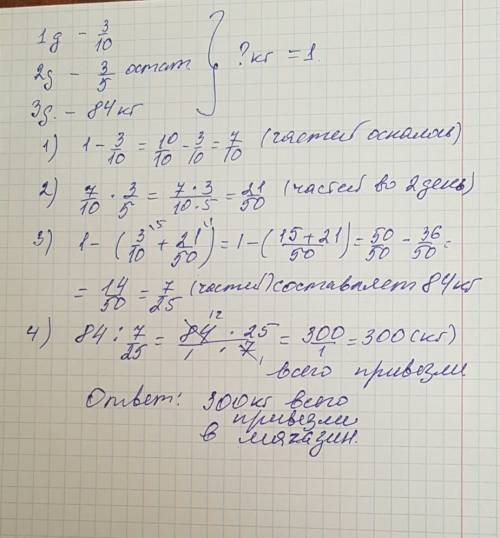 1д - 3/10
2д - 3/5 остат.
3д. - 84 кг
} ? кг = 1.
1) 1 - 3/10 = 10/10 - 3/10 = 7/10 (частей осталось)
2) 7/10 · 3/5 = 7·3/10·5 = 21/50 (частей во 2 день)
3) 1 - (3/10 + 21/50) = 1 - (15+21/50) = 50/50 - 36/50 =
= 14/50 = 7/25 (частей) составляет 84 кг
4) 84 : 7/25 = 84 · 25/1 · 7 = 300/1 = 300 (кг)
всего привезли
Ответ: 300 кг всего
привезли
в магазин.